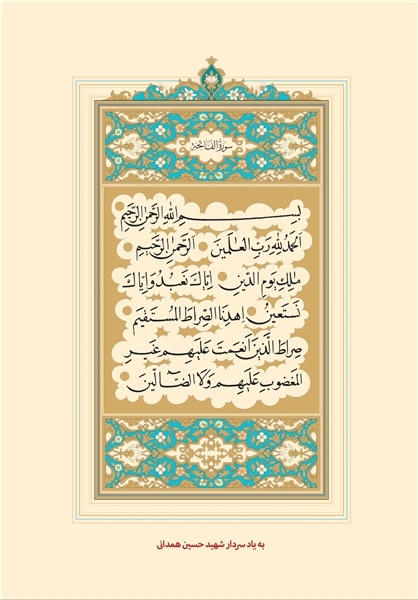 سورة الفاتحة
بِسْمِ اللهِ الرَّحْمٰنِ الرَّحِيمِ
اَلْحَمْدُ لِلّٰهِ رَبِّ الْعٰلَمِينَ الرَّحْمٰنِ الرَّحِيمِ
مٰلِكِ يَوْمِ الدِّينِ اِيَّاكَ نَعْبُدُ وَاِيَّاكَ
نَسْتَعِينُ اِهْدِنَا الصِّرَاطَ الْمُسْتَقِيمَ
صِرَاطَ الَّذِينَ اَنْعَمْتَ عَلَيْهِمْ غَيْرِ
الْمَغْضُوبِ عَلَيْهِمْ وَلَا الضَّآلِّينَ
به یاد سردار شهید حسین همدانی